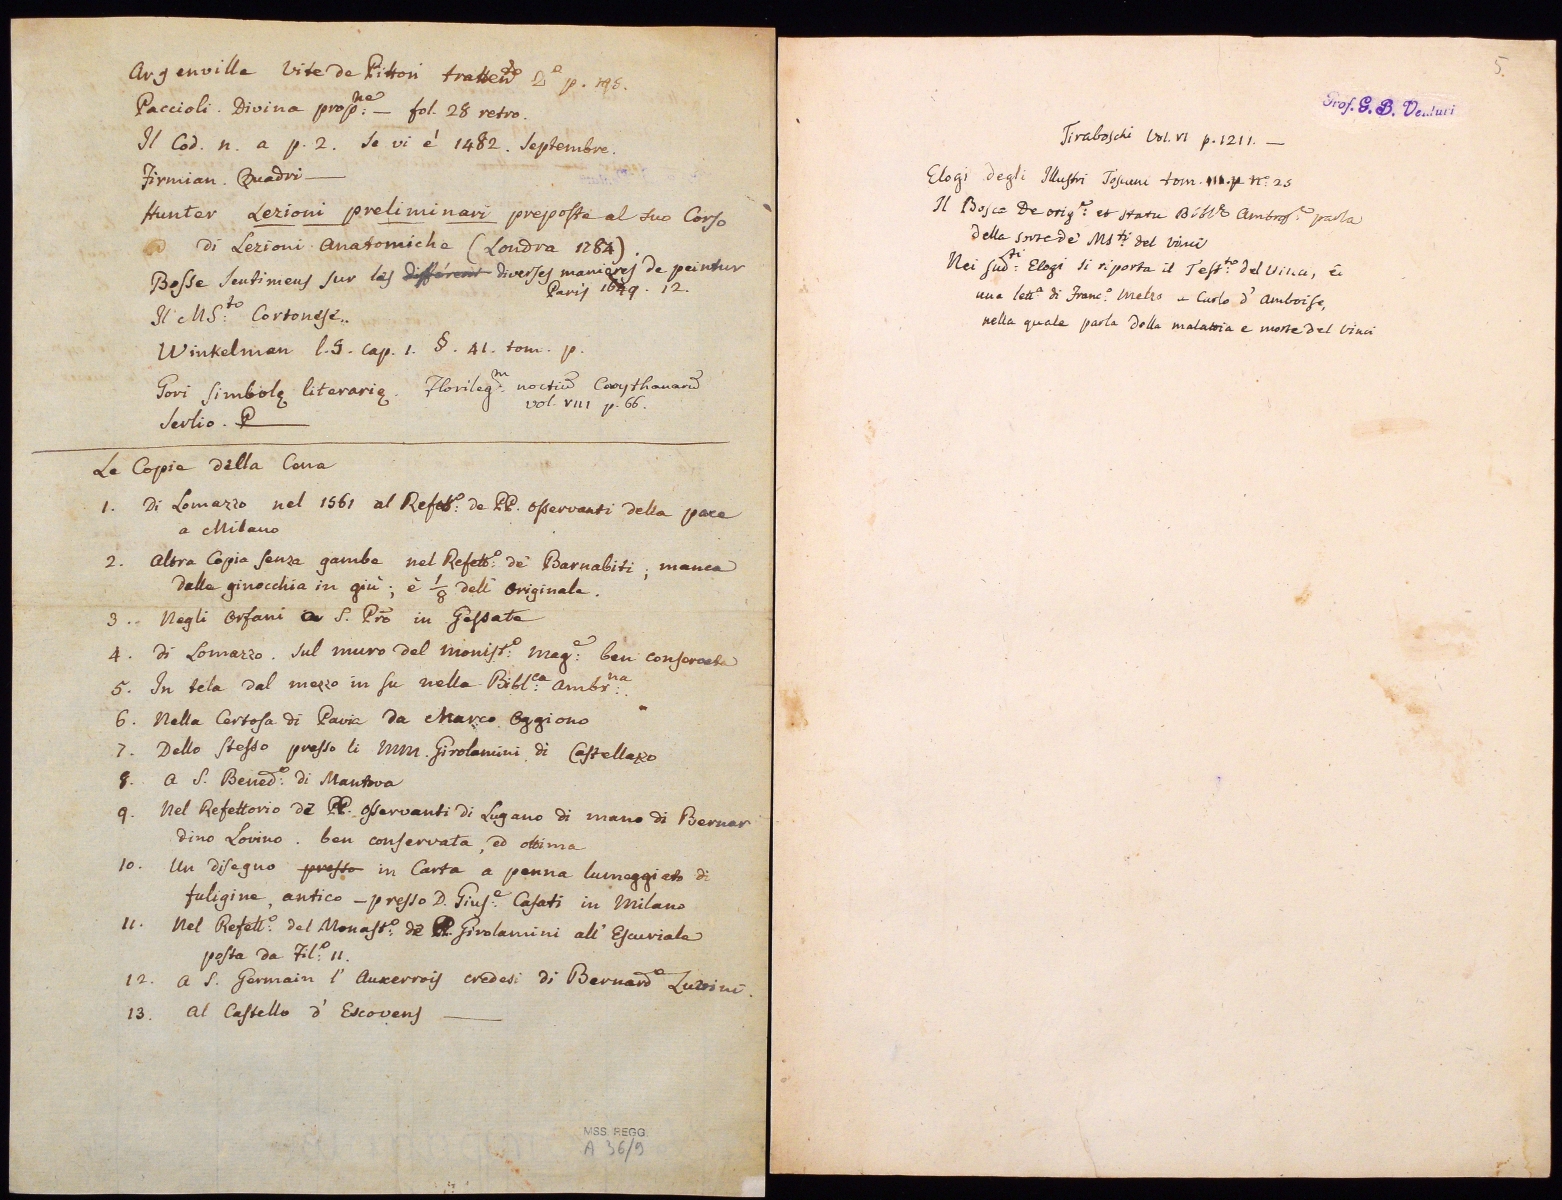 Argenville Vite de Pittori tratten.to 2.o p. 196.
Paccioli. Divina prop:ne — fol. 28 retro.
Il Cod. n. a p. 2. Se vi é 1482. Septembre.
Firmian. Quadri —
Hunter Lezioni preliminari preposte al suo Corso
di Lezioni Anatomiche (Londra 1784).
Bosse Sentimens sur les différent diverses manieres de peintur
Paris 1649. 12.
Il MS:to Cortonese..
Winkelman l.5. cap. 1. §. 41. tom. p.
Gori Simbolę literarię. Florileg:m noctiū Corythanarū
vol. VIII p. 66.
Serlio. P
Le Copie della Cena
1. Di Lomazzo nel 1561 al Refet:o de PP. Osservanti della pace
a Milano
2. Altra Copia senza gambe nel Refett:o de' Barnabiti; manca
dalle ginocchia in giù; è 1/8 dell' Originale.
3.. Negli Orfani a S. Prō in Gessate
4. di Lomazzo. Sul muro del Monist:o Mag:e ben conservata
5. In tela dal mezzo in su nella Bibl:ca Ambr:na.
6. Nella Certosa di Pavia da Marco Oggiono
7. Dello Stesso presso li MM. Girolamini di Castellazo
8. A S. Bened:o di Mantova
9. Nel Refettorio de PP. Osservanti di Lugano di mano di Bernar
dino Lovino. ben conservata, ed ottima
10. Un disegno presso in Carta a penna lumeggiato di
fuligine, antico – presso D. Gius:e Casati in Milano
11. Nel Refett:o del Monast:o de PP. Girolamini all' Escuriale
posta da Fil:o II.
12. A S. Germain l' Auxerrois credesi di Bernard:o Luvini.
13. Al Castello d' Escovens —
MSS. REGG.
A 36/9
5.
Prof. G. B. Venturi
Tiraboschi Vol. VI p. 1211. —
Elogi degli Illustri Toscani tom. III. n:o 25
Il Bosca De orig:e et statu Bibl:ę Ambros:ę parla
della sorte de' MS:ti del Vinci
Nei sud:ti Elogi si riporta il Test:to del Vinci, è
una lett:a di Franc:o Melzo a Carlo d' Amboise,
nella quale parla della malattia e morte del Vinci